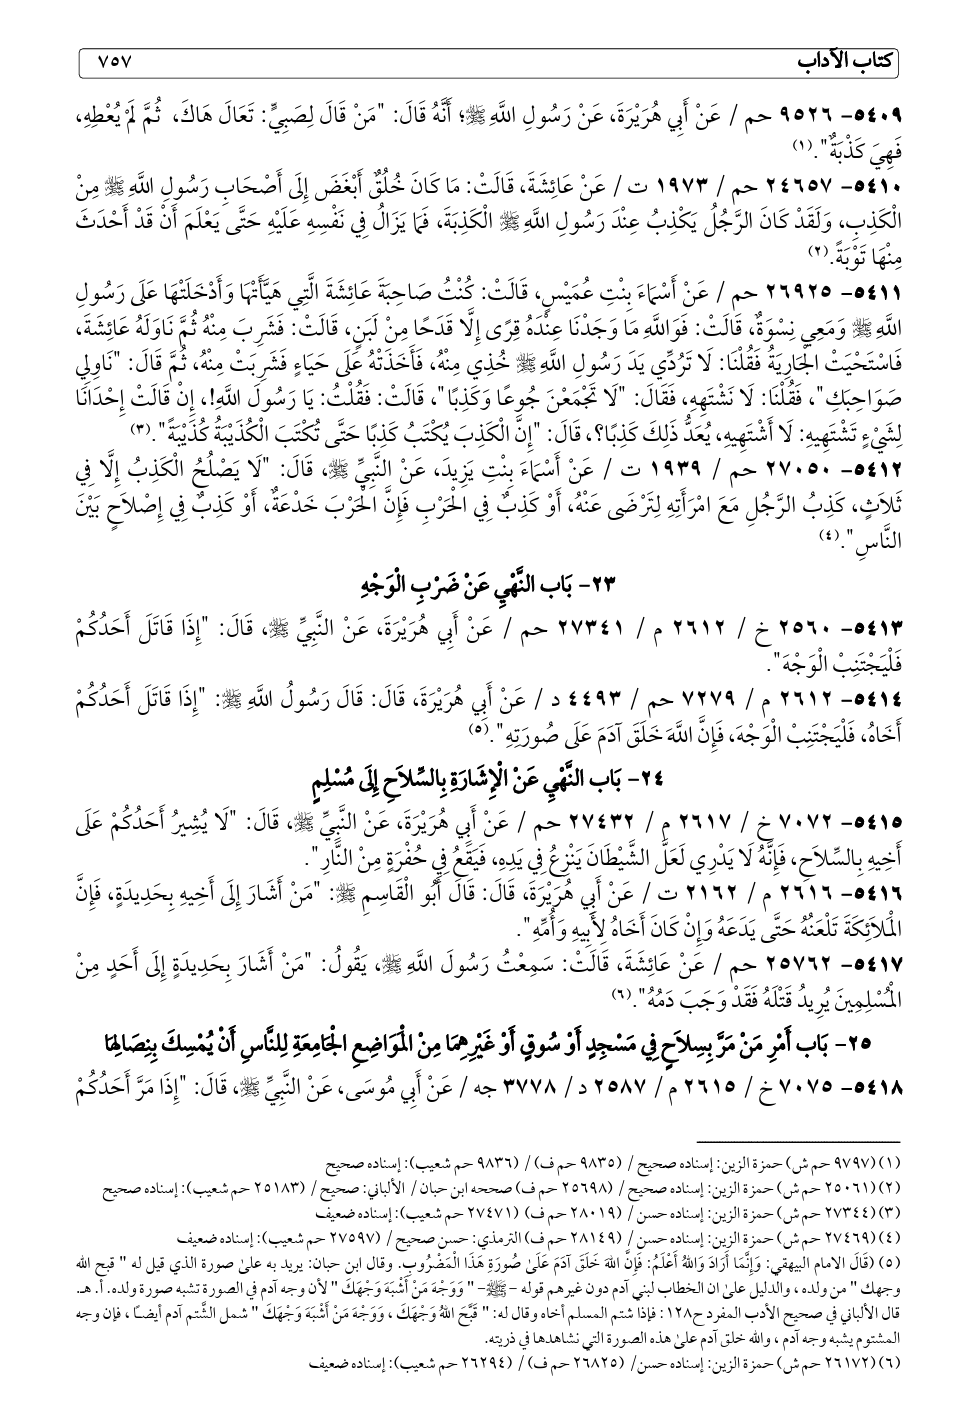 كتاب الآداب ٧٥٧
٥٤٠٩- ٩٥٢٦ حم / عَنْ أَبِي هُرَيْرَةَ، عَنْ رَسُولِ اللَّهِ ﷺ؛ أَنَّهُ قَالَ: "مَنْ قَالَ لِصَبِيٍّ: تَعَالَ هَاكَ، ثُمَّ لَمْ يُعْطِهِ،
فَهِيَ كَذْبَةٌ".(١)
٥٤١٠- ٢٤٦٥٧ حم / ١٩٧٣ ت / عَنْ عَائِشَةَ، قَالَتْ: مَا كَانَ خُلُقٌ أَبْغَضَ إِلَى أَصْحَابِ رَسُولِ اللَّهِ ﷺ مِنْ
الْكَذِبِ، وَلَقَدْ كَانَ الرَّجُلُ يَكْذِبُ عِنْدَ رَسُولِ اللَّهِ ﷺ الْكَذِبَةَ، فَمَا يَزَالُ فِي نَفْسِهِ عَلَيْهِ حَتَّى يَعْلَمَ أَنْ قَدْ أَحْدَثَ
مِنْهَا تَوْبَةً.(٢)
٥٤١١- ٢٦٩٢٥ حم / عَنْ أَسْمَاءَ بِنْتِ عُمَيْسٍ، قَالَتْ: كُنْتُ صَاحِبَةَ عَائِشَةَ الَّتِي هَيَّأَتْهَا وَأَدْخَلَتْهَا عَلَى رَسُولِ
اللَّهِ ﷺ وَمَعِي نِسْوَةٌ، قَالَتْ: فَوَاللَّهِ مَا وَجَدْنَا عِنْدَهُ قِرًى إِلَّا قَدَحًا مِنْ لَبَنٍ، قَالَتْ: فَشَرِبَ مِنْهُ ثُمَّ نَاوَلَهُ عَائِشَةَ،
فَاسْتَحْيَتْ الْجَارِيَةُ فَقُلْنَا: لَا تَرُدِّي يَدَ رَسُولِ اللَّهِ ﷺ خُذِي مِنْهُ، فَأَخَذَتْهُ عَلَى حَيَاءٍ فَشَرِبَتْ مِنْهُ، ثُمَّ قَالَ: "نَاوِلِي
صَوَاحِبَكِ"، فَقُلْنَا: لَا نَشْتَهِهِ، فَقَالَ: "لَا تَجْمَعْنَ جُوعًا وَكَذِبًا"، قَالَتْ: فَقُلْتُ: يَا رَسُولَ اللَّهِ!، إِنْ قَالَتْ إِحْدَانَا
لِشَيْءٍ تَشْتَهِيهِ: لَا أَشْتَهِيهِ، يُعَدُّ ذَلِكَ كَذِبًا؟، قَالَ: "إِنَّ الْكَذِبَ يُكْتَبُ كَذِبًا حَتَّى تُكْتَبَ الْكُذَيْبَةُ كُذَيْبَةً".(٣)
٥٤١٢- ٢٧٠٥٠ حم / ١٩٣٩ ت / عَنْ أَسْمَاءَ بِنْتِ يَزِيدَ، عَنْ النَّبِيِّ ﷺ، قَالَ: "لَا يَصْلُحُ الْكَذِبُ إِلَّا فِي
ثَلَاثٍ، كَذِبُ الرَّجُلِ مَعَ امْرَأَتِهِ لِتَرْضَى عَنْهُ، أَوْ كَذِبٌ فِي الْحَرْبِ فَإِنَّ الْحَرْبَ خَدْعَةٌ، أَوْ كَذِبٌ فِي إِصْلَاحٍ بَيْنَ
النَّاسِ".(٤)
٢٣- بَاب النَّهْيِ عَنْ ضَرْبِ الْوَجْهِ
٥٤١٣- ٢٥٦٠ خ / ٢٦١٢ م / ٢٧٣٤١ حم / عَنْ أَبِي هُرَيْرَةَ، عَنْ النَّبِيِّ ﷺ، قَالَ: "إِذَا قَاتَلَ أَحَدُكُمْ
فَلْيَجْتَنِبْ الْوَجْهَ".
٥٤١٤- ٢٦١٢ م / ٧٢٧٩ حم / ٤٤٩٣ د / عَنْ أَبِي هُرَيْرَةَ، قَالَ: قَالَ رَسُولُ اللَّهِ ﷺ: "إِذَا قَاتَلَ أَحَدُكُمْ
أَخَاهُ، فَلْيَجْتَنِبْ الْوَجْهَ، فَإِنَّ اللَّهَ خَلَقَ آدَمَ عَلَى صُورَتِهِ".(٥)
٢٤- بَاب النَّهْيِ عَنْ الْإِشَارَةِ بِالسِّلَاحِ إِلَى مُسْلِمٍ
٥٤١٥- ٧٠٧٢ خ / ٢٦١٧ م / ٢٧٤٣٢ حم / عَنْ أَبِي هُرَيْرَةَ، عَنْ النَّبِيِّ ﷺ، قَالَ: "لَا يُشِيرُ أَحَدُكُمْ عَلَى
أَخِيهِ بِالسِّلَاحِ، فَإِنَّهُ لَا يَدْرِي لَعَلَّ الشَّيْطَانَ يَنْزِعُ فِي يَدِهِ، فَيَقَعُ فِي حُفْرَةٍ مِنْ النَّارِ".
٥٤١٦- ٢٦١٦ م / ٢١٦٢ ت / عَنْ أَبِي هُرَيْرَةَ، قَالَ: قَالَ أَبُو الْقَاسِمِ ﷺ: "مَنْ أَشَارَ إِلَى أَخِيهِ بِحَدِيدَةٍ، فَإِنَّ
الْمَلَائِكَةَ تَلْعَنُهُ حَتَّى يَدَعَهُ وَإِنْ كَانَ أَخَاهُ لِأَبِيهِ وَأُمِّهِ".
٥٤١٧- ٢٥٧٦٢ حم / عَنْ عَائِشَةَ، قَالَتْ: سَمِعْتُ رَسُولَ اللَّهِ ﷺ، يَقُولُ: "مَنْ أَشَارَ بِحَدِيدَةٍ إِلَى أَحَدٍ مِنْ
الْمُسْلِمِينَ يُرِيدُ قَتْلَهُ فَقَدْ وَجَبَ دَمُهُ".(٦)
٢٥- بَاب أَمْرِ مَنْ مَرَّ بِسِلَاحٍ فِي مَسْجِدٍ أَوْ سُوقٍ أَوْ غَيْرِهِمَا مِنْ الْمَوَاضِعِ الْجَامِعَةِ لِلنَّاسِ أَنْ يُمْسِكَ بِنِصَالِهَا
٥٤١٨- ٧٠٧٥ خ / ٢٦١٥ م / ٢٥٨٧ د / ٣٧٧٨ جه / عَنْ أَبِي مُوسَى، عَنْ النَّبِيِّ ﷺ، قَالَ: "إِذَا مَرَّ أَحَدُكُمْ
(١) (٩٧٩٧ حم ش) حمزة الزين: إسناده صحيح / (٩٨٣٥ حم ف) / (٩٨٣٦ حم شعيب): إسناده صحيح
(٢) (٢٥٠٦١ حم ش) حمزة الزين: إسناده صحيح / (٢٥٦٩٨ حم ف) صححه ابن حبان / الألباني: صحيح / (٢٥١٨٣ حم شعيب): إسناده صحيح
(٣) (٢٧٣٤٤ حم ش) حمزة الزين: إسناده حسن / (٢٨٠١٩ حم ف) (٢٧٤٧١ حم شعيب): إسناده ضعيف
(٤) (٢٧٤٦٩ حم ش) حمزة الزين: إسناده حسن / (٢٨١٤٩ حم ف) الترمذي: حسن صحيح / (٢٧٥٩٧ حم شعيب): إسناده ضعيف
(٥) (قَالَ الامام البيهقي: وَإِنَّمَا أَرَادَ وَاللهُ أَعْلَمُ: فَإِنَّ اللهَ خَلَقَ آدَمَ عَلَىٰ صُورَةِ هَذَا الْمَضْرُوبِ. وقال ابن حبان: يريد به علىٰ صورة الذي قيل له " قبح الله
وجهك " من ولده ، والدليل علىٰ ان الخطاب لبني آدم دون غيرهم قوله -ﷺ- " وَوَجْهَ مَنْ أَشْبَهَ وَجْهَكَ " لأن وجه آدم في الصورة تشبه صورة ولده. أ. هـ.
قال الألباني في صحيح الأدب المفرد ح١٢٨: فإذا شتم المسلم أخاه وقال له: " قَبَّحَ اللهُ وَجْهَكَ ، وَوَجْهَ مَنْ أَشْبَهَ وَجْهَكَ " شمل الشَّتم آدم أيضًا ، فإن وجه
المشتوم يشبه وجه آدم ، والله خلق آدم علىٰ هذه الصورة التي نشاهدها في ذريته.
(٦) (٢٦١٧٢ حم ش) حمزة الزين: إسناده حسن/ (٢٦٨٢٥ حم ف) / (٢٦٢٩٤ حم شعيب): إسناده ضعيف